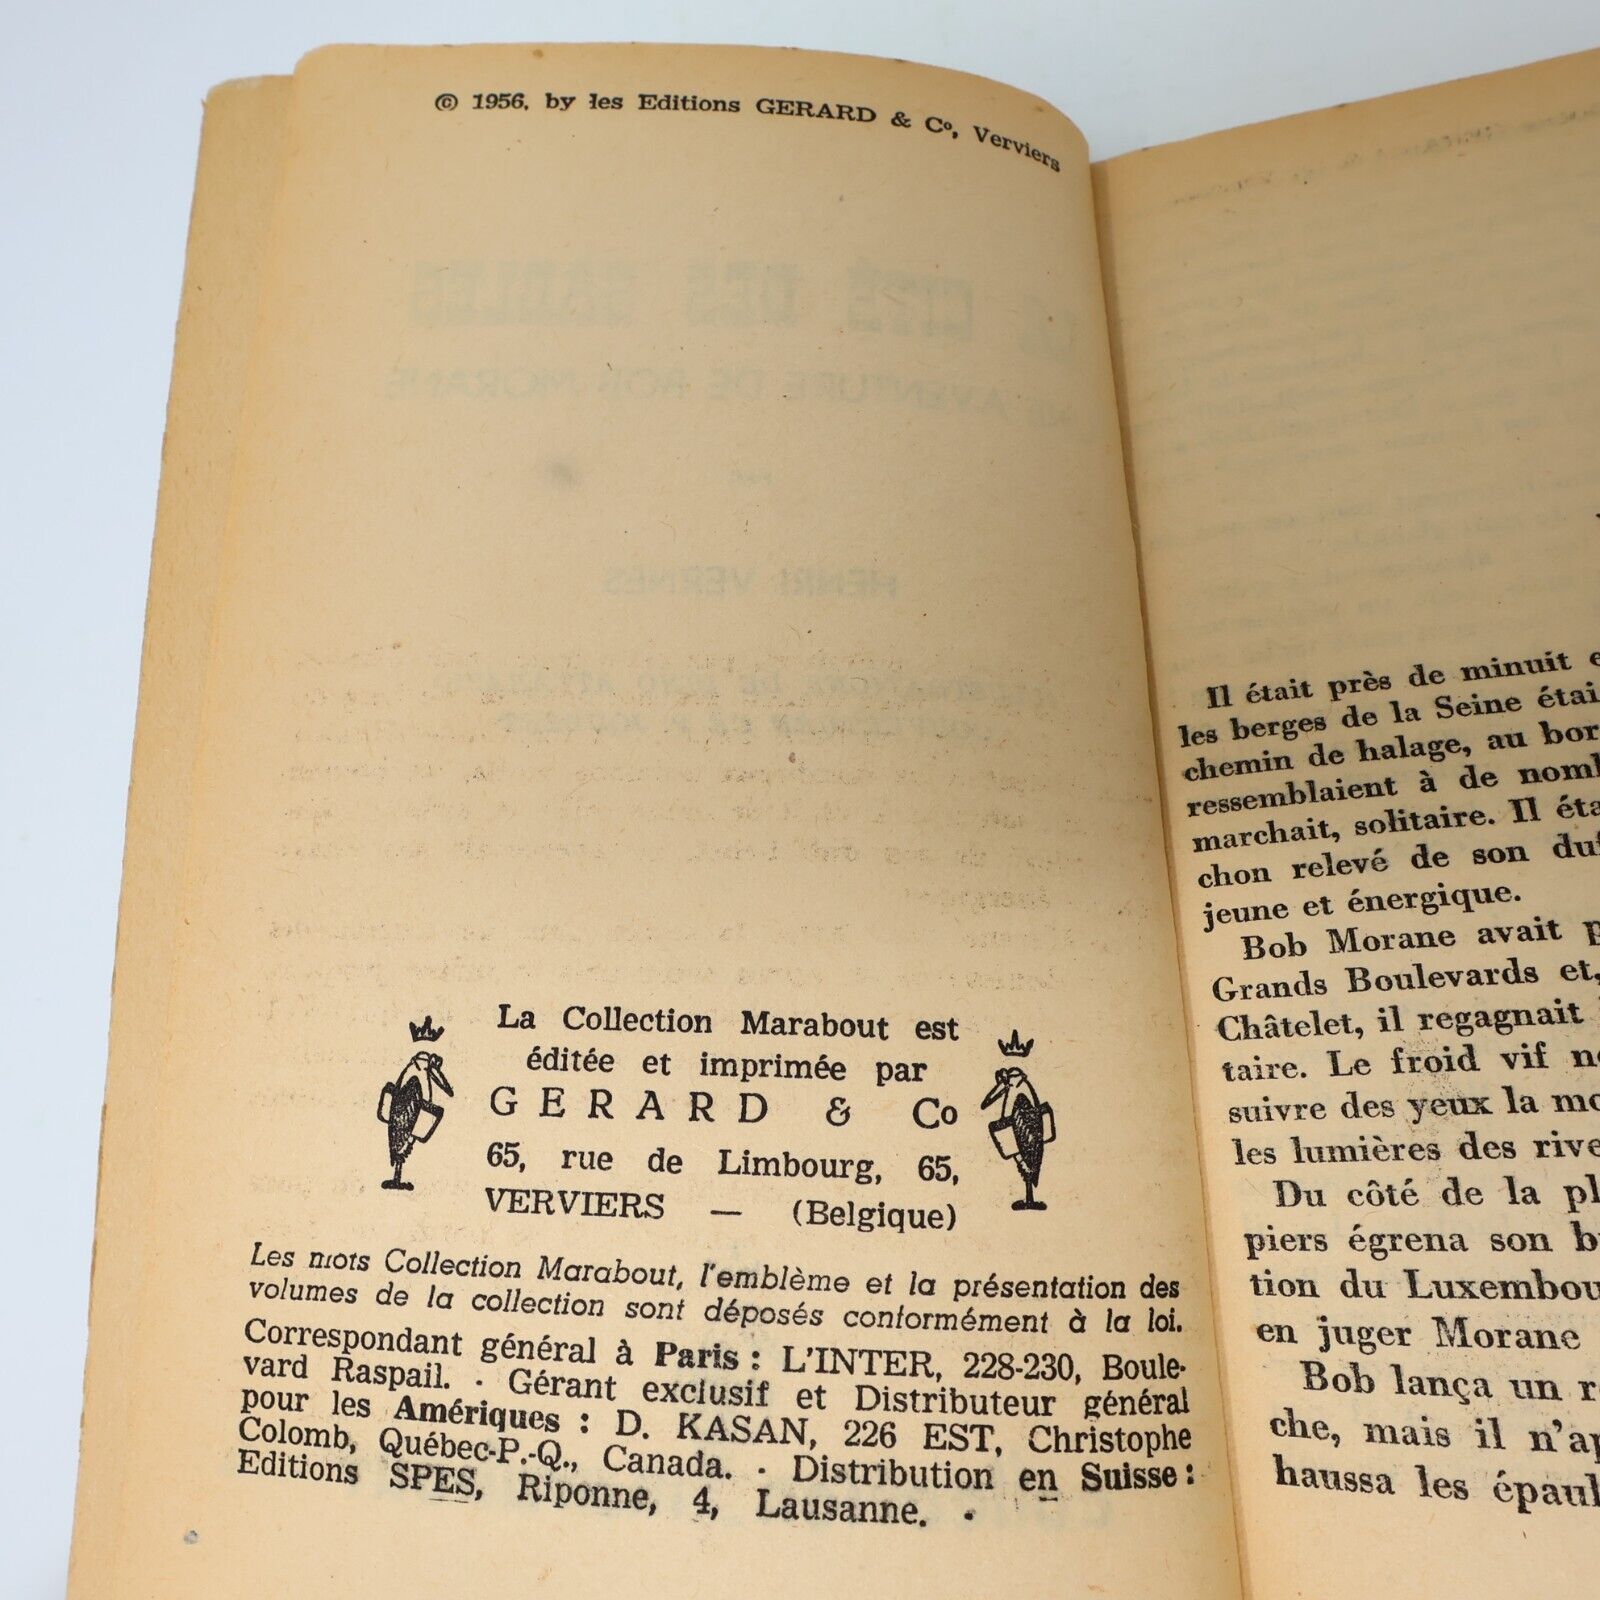 © 1956, by les Editions GERARD & Cº, Verviers
La Collection Marabout est
éditée et imprimée par
GERARD & Co
65, rue de Limbourg, 65,
VERVIERS — (Belgique)
Les mots Collection Marabout, l'emblème et la présentation des
volumes de la collection sont déposés conformément à la loi.
Correspondant général à Paris : L'INTER, 228-230, Boule-
vard Raspail. - Gérant exclusif et Distributeur général
pour les Amériques : D. KASAN, 226 EST, Christophe
Colomb, Québec-P.-Q., Canada. - Distribution en Suisse :
Editions SPES, Riponne, 4, Lausanne. -
Il était près de minuit
les berges de la Seine
chemin de halage, au
ressemblaient à de
marchait, solitaire. Il
chon relevé de son
jeune et énergique.
Bob Morane avait
Grands Boulevards et,
Châtelet, il regagnait
taire. Le froid vif
suivre des yeux la
les lumières des
Du côté de la
piers égrena son
tion du
en juger Morane
Bob lança un
che, mais il
haussa les